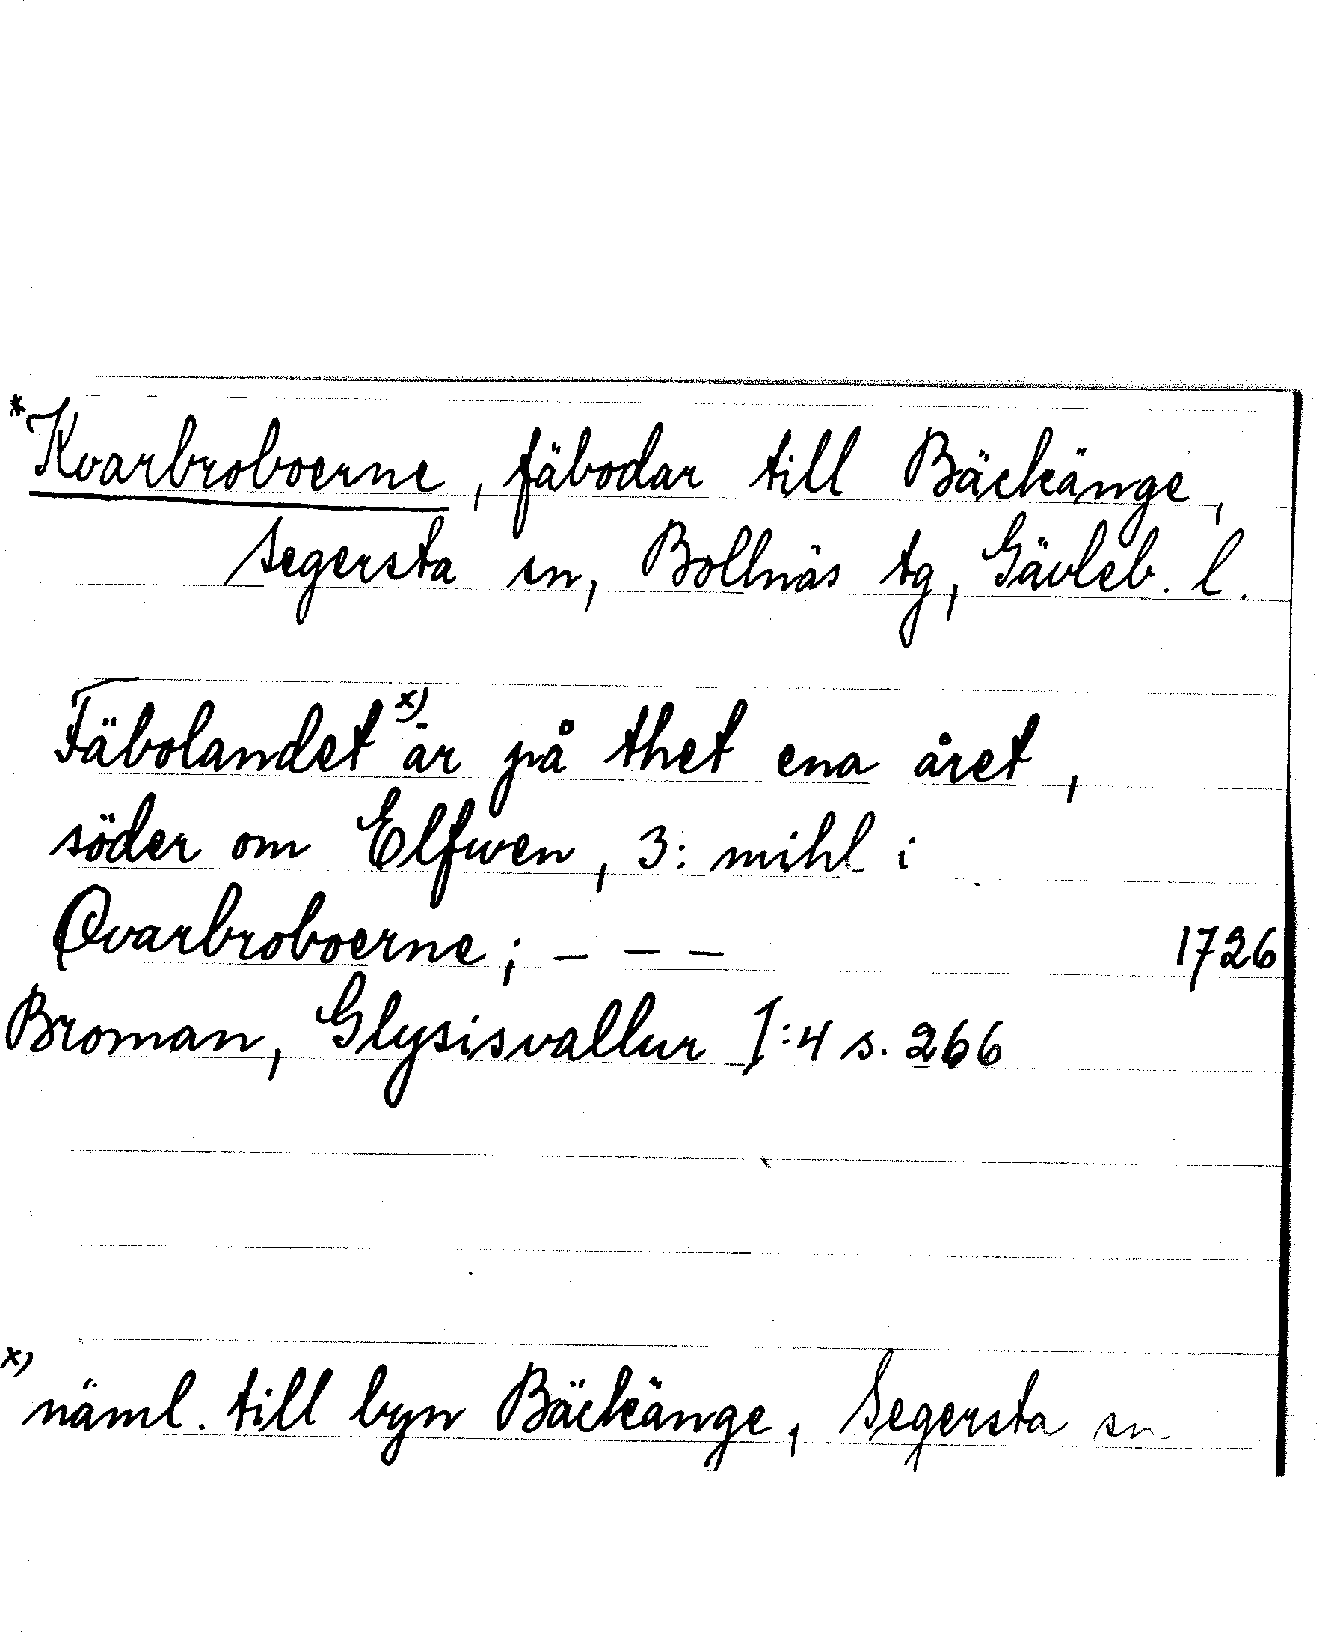 *Kvarbroboerne, fäbodar till Bäckänge,
Segersta sn, Bollnäs tg, Gävleb. l.
Fäbolandet x) är på thet ena året,
söder om Elfwen, 3: mihl i
Qvarbroboerne; – – – 1726
Broman, Glysisvallur I:4 s. 266
x) näml. till byn Bäckänge, Segersta sn